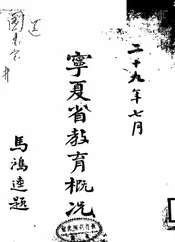 二十九年七月
寧夏省教育概况
馬鴻逵題